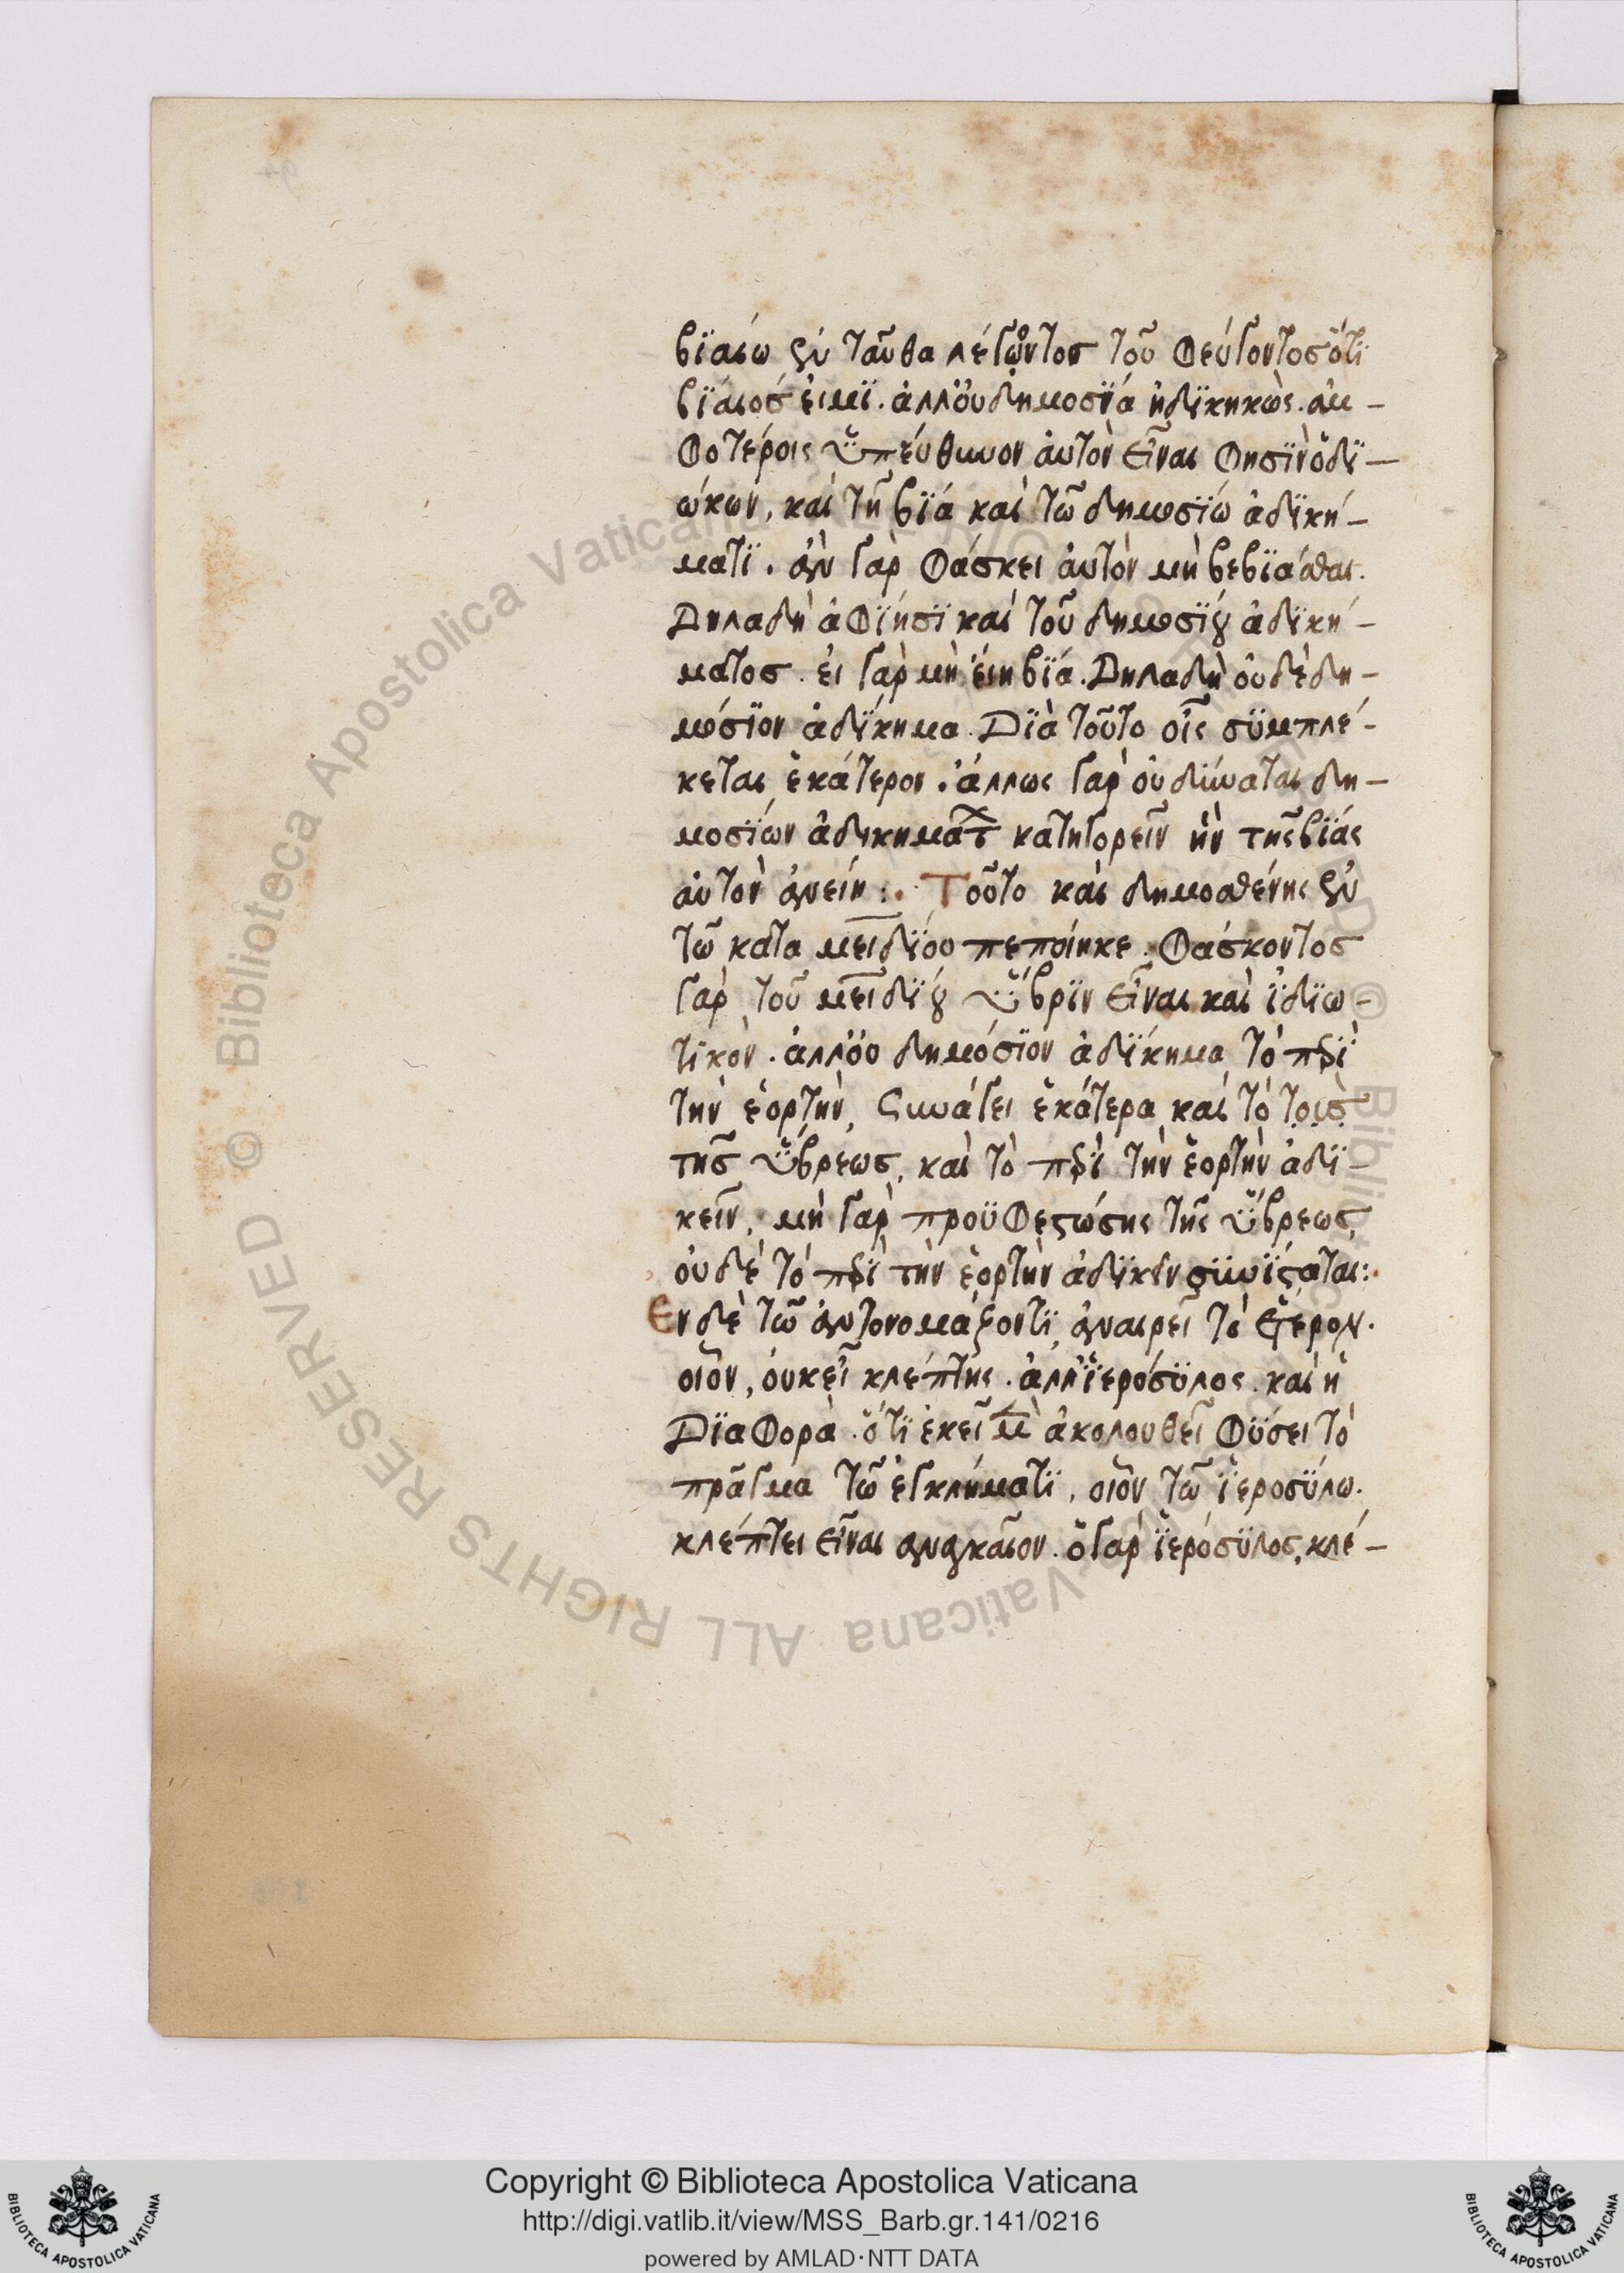 βϊαίω ἐν ταῦθα λέγοντος τοῦ φεύγοντος ὅτϊ
βϊάιός ἐιμϊ. ἀλλ' ὀυ δημοσΐα ἠδϊκηκὼς. ἀμ-
φοτέροις ὑπέυθυνον ἀυτὸν εἶναι φησῒν ὁ δϊ-
ώκων, καὶ τῆ βϊά καὶ τῶ δημωσΐω ἀδϊκή-
ματϊ. ἀν γὰρ φάσκει ἀυτὸν μὴ βεβϊάσθαι.
Δηλαδὴ ἀφΐησϊ καὶ τοῦ δημωσΐου ἀδϊκή-
ματος. ἐι γὰρ μὴ ἔιη βϊά. Δηλαδὴ ὀυδὲ δη-
μώσϊον ἀδΐκημα. Δϊὰ τοῦτο οἷς σϋμπλέ-
κεται ἑκάτερον. ἄλλως γὰρ ὀυ δύναται δη-
μοσΐων ἀδικημάτ κατηγορεῖν ἢν τῆς βϊάς
ἀυτὸν ἀνείη:. Τοῦτο καὶ δημοσθένης ἐν
τῶ κατα μειδΐου πεποίηκε. φάσκοντος
γὰρ τοῦ μειδΐου ὕβρϊν εἶναι καὶ ἰ̈δϊω-
τικὸν. ἀλλ' ὀυ δημόσϊον ἀδΐκημα τὸ περῒ
τὴν ἑορτὴν, συνάγει ἑκάτερα καὶ τὸ τοισ
τῆς ὕβρεως, καὶ τὸ περῒ τὴν ἑορτὴν ἀδϊ-
κεῖν. μὴ γὰρ προϋφεστώσης τῆς ὕβρεως,
ὀυδὲ τὸ περῒ τὴν ἑορτὴν ἀδϊκεῖν συνΐσταται:.
Εν δὲ τῶ ἀντονομάζοντϊ, ἀναιρεῖ τὸ ἕτερον.
οἷον, ὀυκ εἶ κλέπτης. ἀλλ' ἱ̈ερόσϋλος. καὶ ἡ
Διαφορὰ. ὅτϊ ἐκεῖ μὲν ἀκολουθεῖ φΰσει τὸ
πρᾶγμα τῶ ἐγκλήματϊ, οἷον τῶ ἱ̈εροσΰλω.
κλέπτει εἶναι ἀναγκαῖον. ὁ γὰρ ἱ̈ερόσϋλος, κλέ-
Copyright © Biblioteca Apostolica Vaticana
http://digi.vatlib.it/view/MSS_Barb.gr.141/0216
powered by AMLAD·NTT DATA
BIBLIOTECA APOSTOLICA VATICANA
BIBLIOTECA APOSTOLICA VATICANA
© Biblioteca Apostolica Vaticana ALL RIGHTS RESERVED